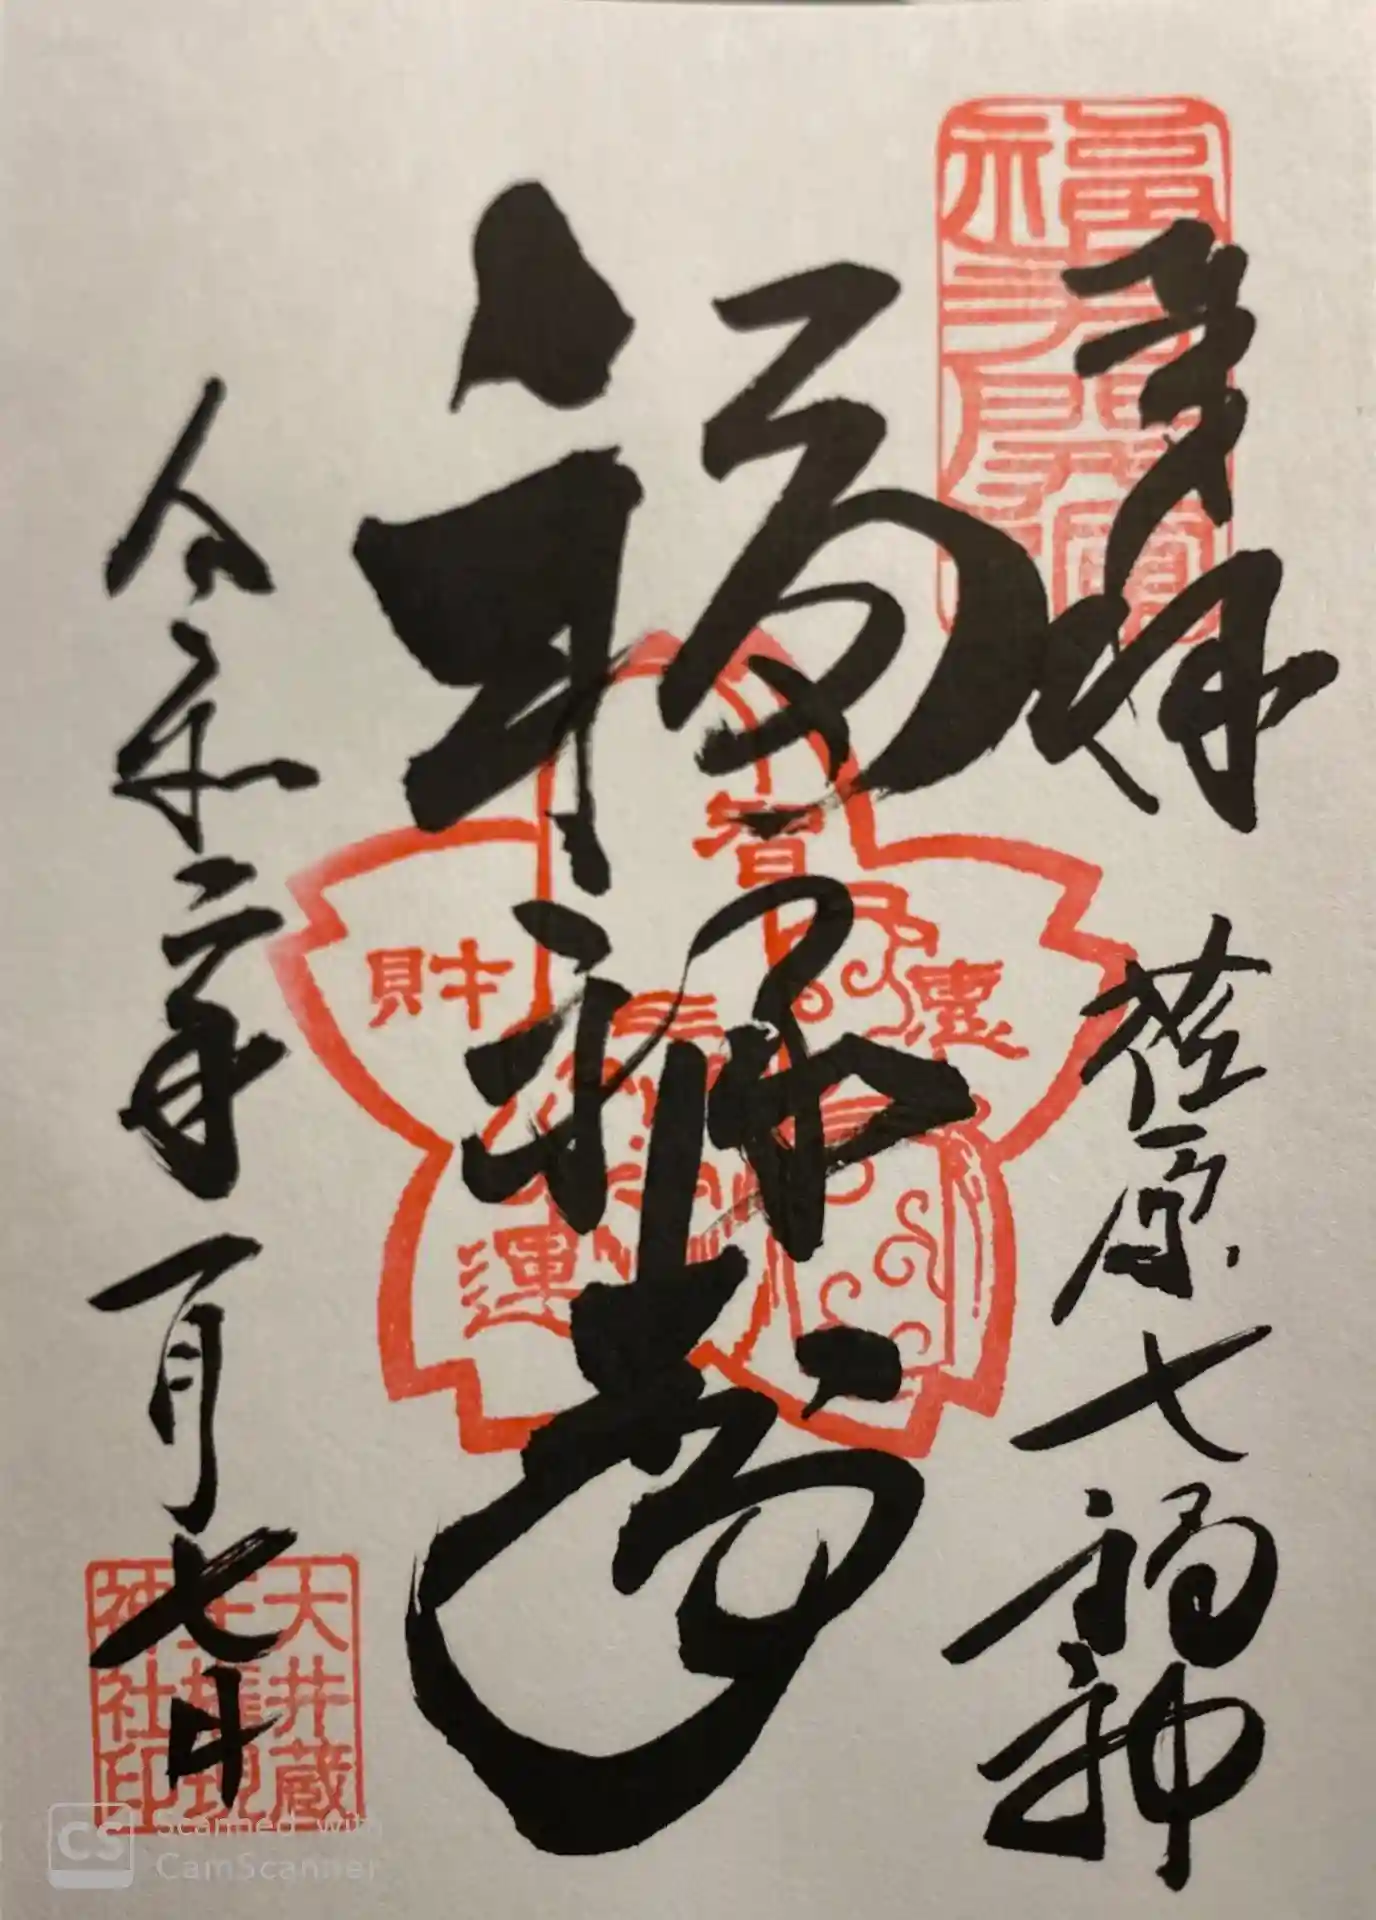 奉拝
荏原七福神
福禄寿
令和二年一月七日
智
財
運
大井蔵
王権現
神社印
CS Scanned with
CamScanner